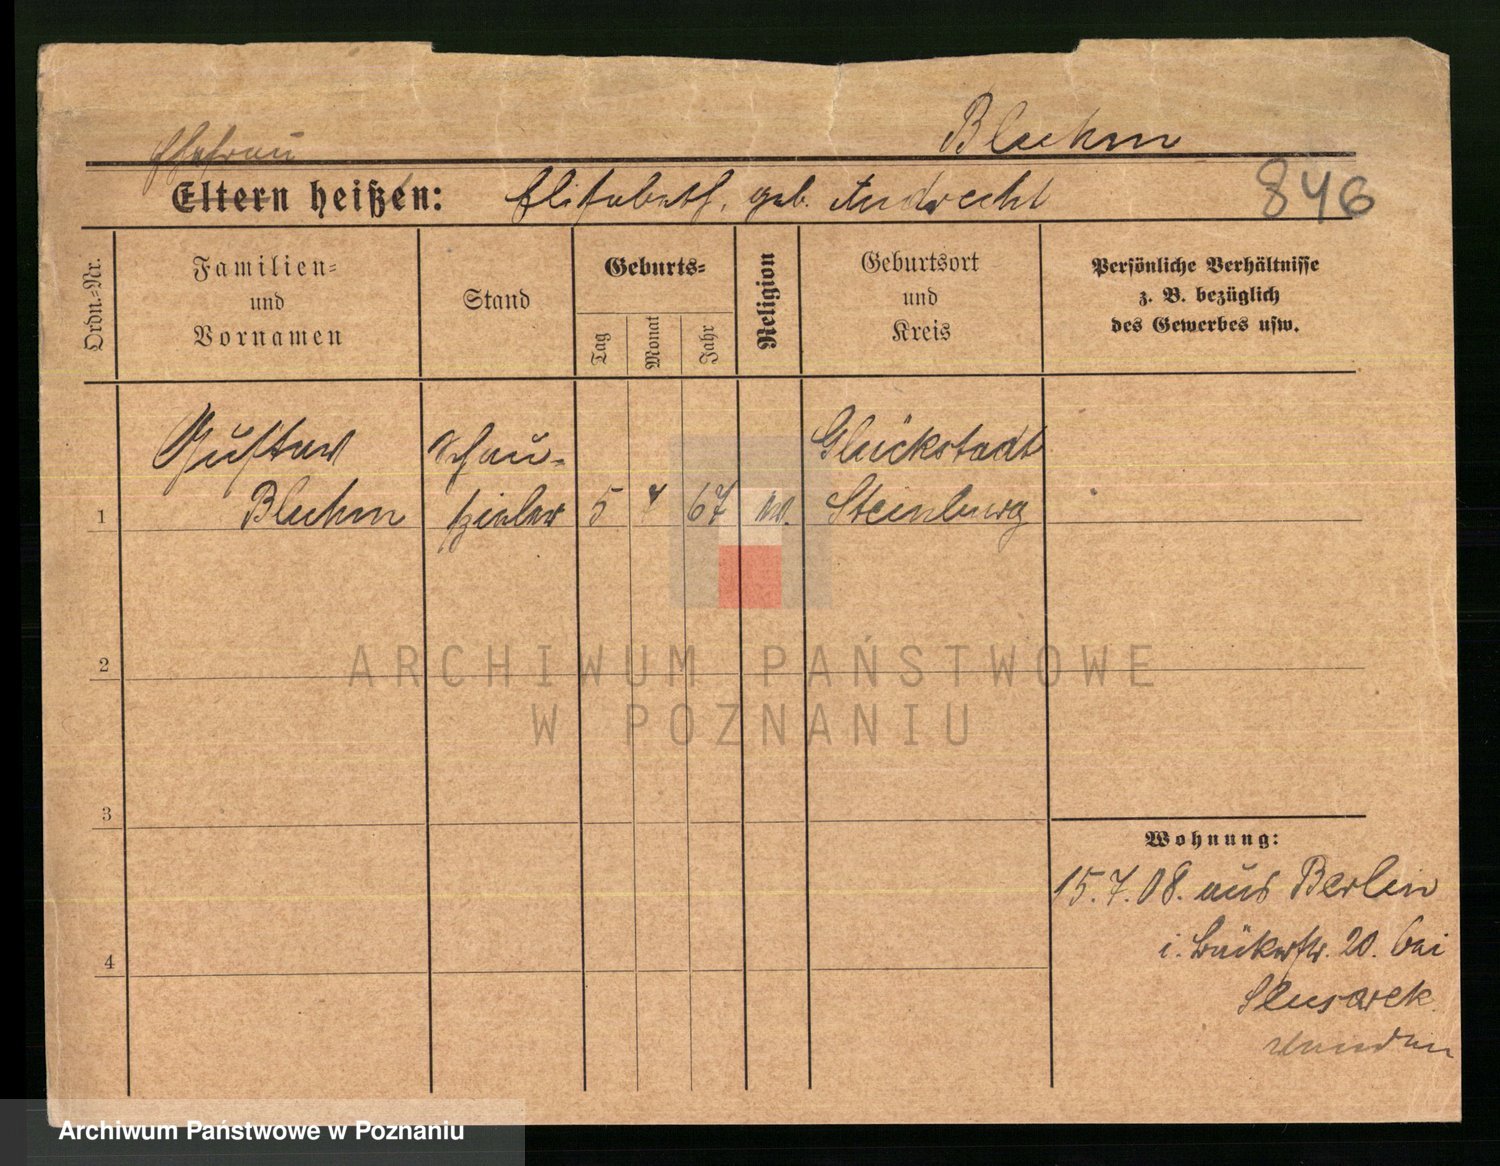 Bluhm
Ehefrau
Eltern heißen: Elisabeth, geb. Andrecht
846
Ordn.-Nr.
Familien-
und
Vornamen
Stand
Geburts-
Tag
Monat
Jahr
Religion
Geburtsort
und
Kreis
Persönliche Verhältnisse
z. B. bezüglich
des Gewerbes usw.
Gustav Schau- Glückstadt
1 Bluhm spieler 5 7 67 ev. Steinburg
2
3
4
Wohnung:
15.7.08. aus Berlin
i. Bäckerstr. 20. bei
Slusarek
ARCHIWUM PAŃSTWOWE
W POZNANIU
Archiwum Państwowe w Poznaniu